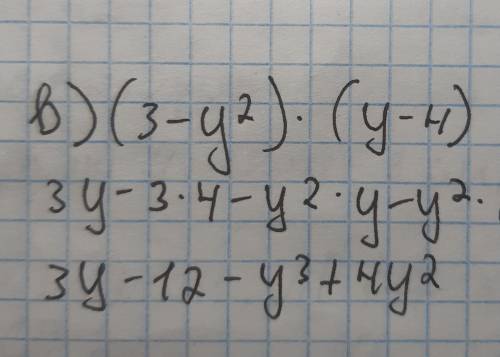 в) (3 - y²) · (y - 4)
3y - 3·4 - y²·y - y²·
3y - 12 - y³ + 4y²